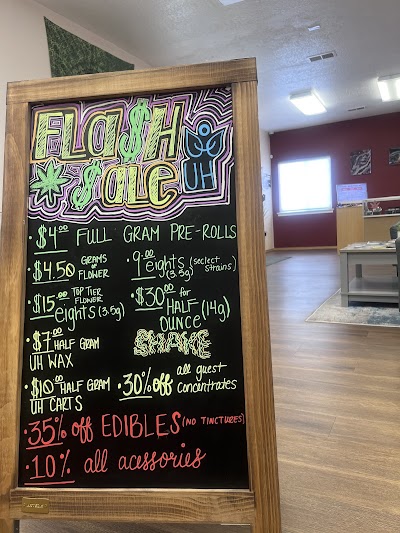 FLa$H
$ale UH
• $4.00 FULL GRAM PRE-ROLLS
• $4.50 GRAMS OF FLOWER
• 9.00 eights (seclect strains) (3.5g)
• $15.00 TOP TIER FLOWER eights (3.5g)
• $30.00 for HALF OUNCE (14g) SHAKE
• $7.00 HALF GRAM UH WAX
• $10.00 HALF GRAM UH CARTS
• 30% off all guest concentrates
• 35% off EDIBLES (NO TINCTURES)
• 10% all acessories